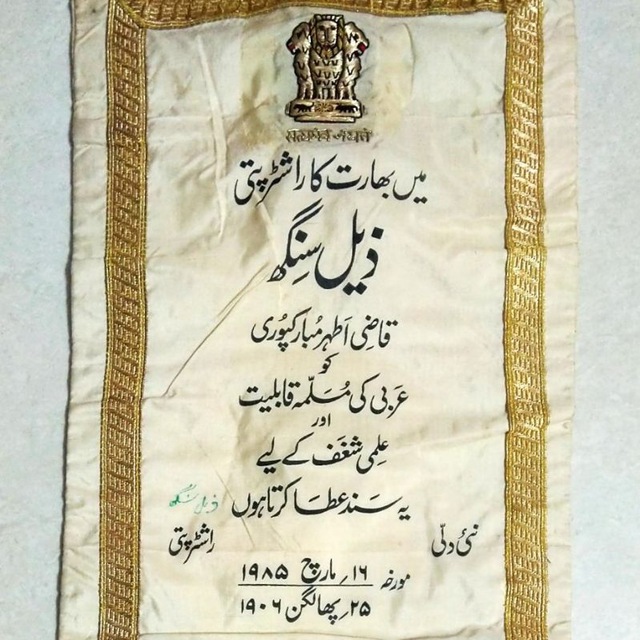 सत्यमेव जयते
میں بھارت کا راشٹرپتی
ذیل سِنگھ
قاضِی اَطہر مُبارکپُوری
کو
عَربی کی مُسَلّمہ قابلیت
اور
عِلمِی شغَف کے لیے
یہ سَند عطا کرتا ہوں
ذیل سنگھ
نئی دلّی
راشٹرپتی
مورخہ ۱۶؍ مارچ ۱۹۸۵
۲۵؍ پھالگن ۱۹۰۶